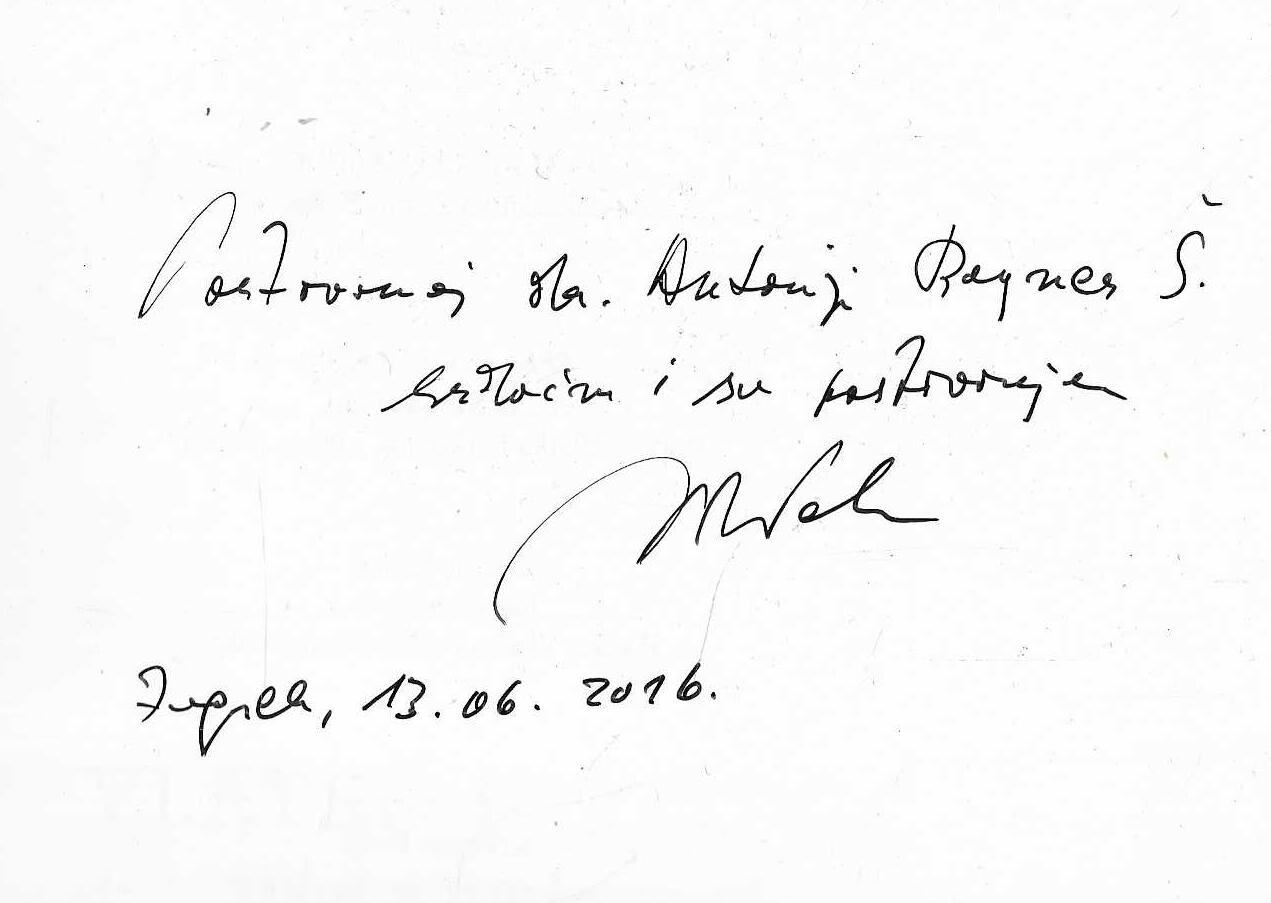 Poštovanoj dr. Antoniji Bogner Š.
srdačno i sa poštovanjem
Zagreb, 13.06.2016.